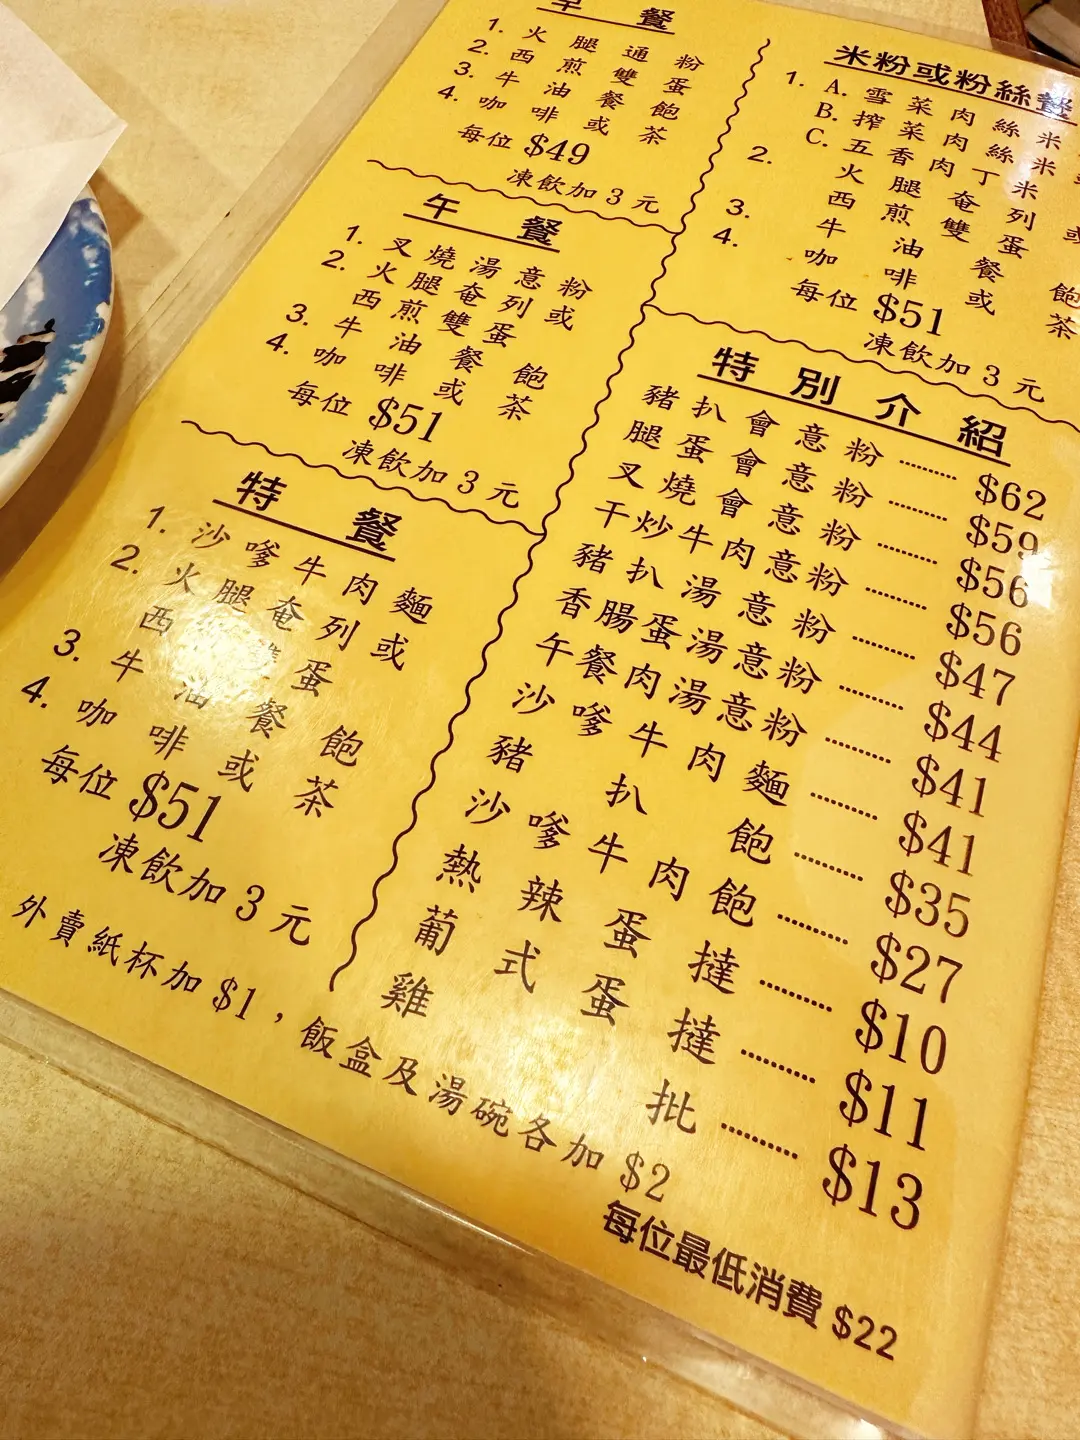 早餐
1. 火腿通粉
2. 西煎雙蛋
3. 牛油餐飽
4. 咖啡或茶
每位 $49
凍飲加 3 元
午餐
1. 叉燒湯意粉
2. 火腿奄列或
西煎雙蛋
3. 牛油餐飽
4. 咖啡或茶
每位 $51
凍飲加 3 元
特餐
1. 沙嗲牛肉麵
2. 火腿奄列或
西煎雙蛋
3. 牛油餐飽
4. 咖啡或茶
每位 $51
凍飲加 3 元
米粉或粉絲餐
1. A. 雪菜肉絲米
B. 搾菜肉絲米
C. 五香肉丁米
2. 火腿奄列或
西煎雙蛋
3. 牛油餐飽
4. 咖啡或茶
每位 $51
凍飲加 3 元
特別介紹
豬扒會意粉 ......... $62
腿蛋會意粉 ......... $59
叉燒會意粉 ......... $56
干炒牛肉意粉 ......... $56
豬扒湯意粉 ......... $47
香腸蛋湯意粉 ......... $44
午餐肉湯意粉 ......... $41
沙嗲牛肉麵 ......... $41
豬扒飽 ......... $35
沙嗲牛肉飽 ......... $27
熱辣蛋撻 ......... $10
葡式蛋撻 ......... $11
雞批 ......... $13
外賣紙杯加 $1，飯盒及湯碗各加 $2
每位最低消費 $22